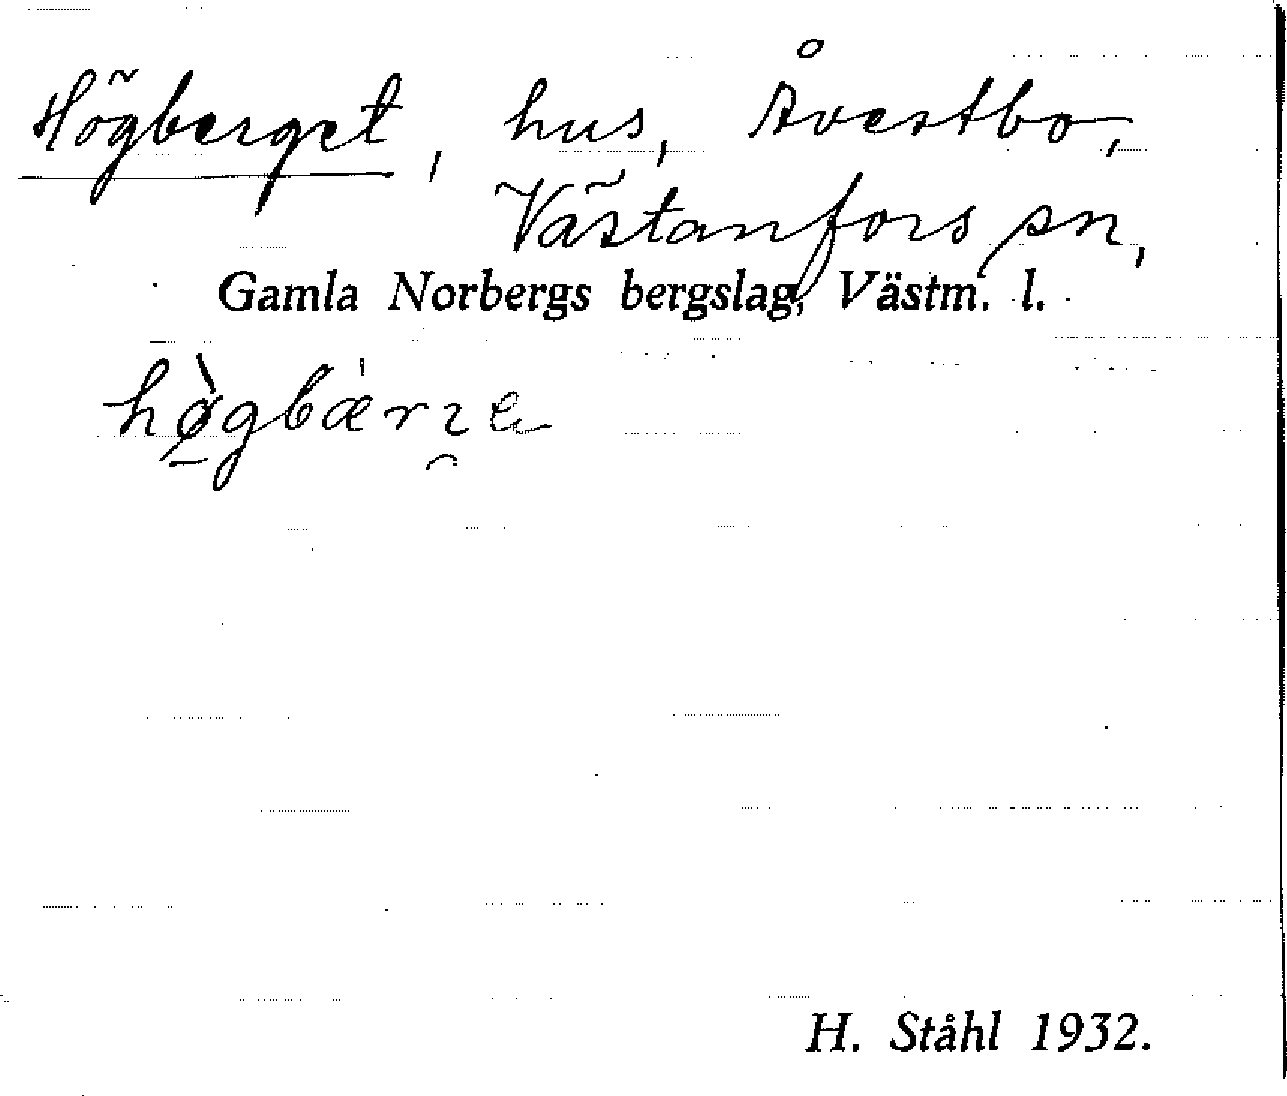 Högberget, hus, Åvestbo,
Västanfors sn,
Gamla Norbergs bergslag, Västm. l.
hø̀gbæ̀rɿe
H. Ståhl 1932.